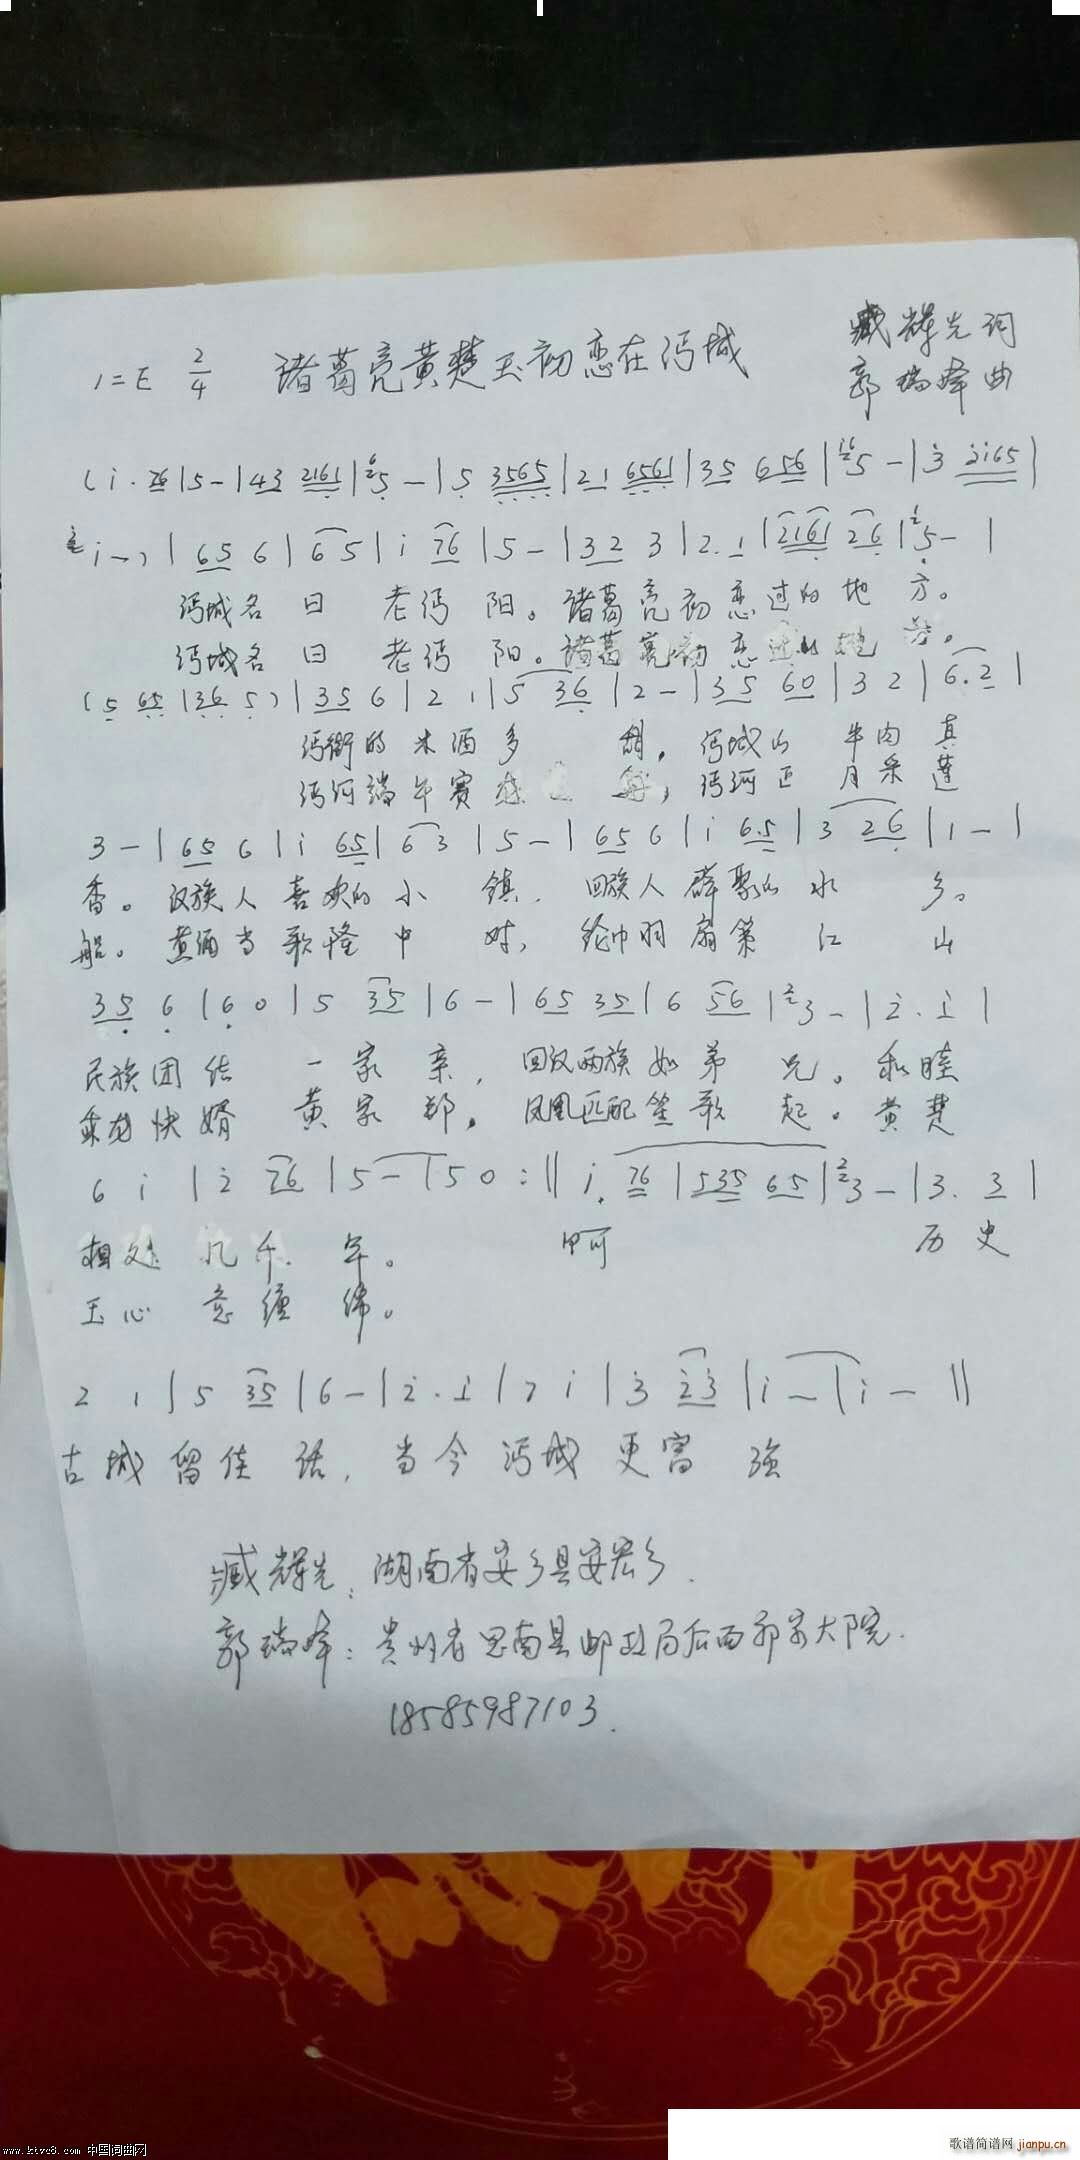 1=E 2/4 诸葛亮黄楚玉初恋在沔城 臧辉先词
郭瑞峰曲
(i·76|5-|43 2161|5-|5 3565|21 6561|35 656|5-|3 2165|
i-)|65 6|65|i 76|5-|32 3|2.1|2161 26|5-|
沔城名曰 老沔阳。诸葛亮初恋过的地方。
沔城名曰 老沔阳。诸葛亮初恋
(5 65|36 5)|35 6|2 1|5 36|2-|35 60|32|6.2|
沔街的米酒多 甜,沔城的牛肉真
沔河端午赛 沔河正月采莲
3-|65 6|i 65|63|5-|65 6|i 6.5|3 26|1-|
香。汉族人喜欢的小镇,回族人群聚的水乡。
船。煮酒当歌隆中对,纶巾羽扇策江山
35 6|60|5 35|6-|65 35|6 56|3-|2.i|
民族团结 一家亲,回汉两族如弟兄。和睦
乘龙快婿 黄家郎,凤凰匹配笙歌起。黄楚
6 i|2 76|5-|50:||i.76|535 65|3-|3.3|
相处几千年。 呵 历史
玉心意缠绵。
2 1|5 35|6-|2.i|7 i|3 23|i-|i-||
古城留佳话,当今沔城更富强
臧辉先:湖南省安乡县安宏乡.
郭瑞峰:贵州省思南县邮政局后面郭家大院.
18585987103.
www.ktvc8.com 中国词曲网
歌谱简谱网 jianpu.cn